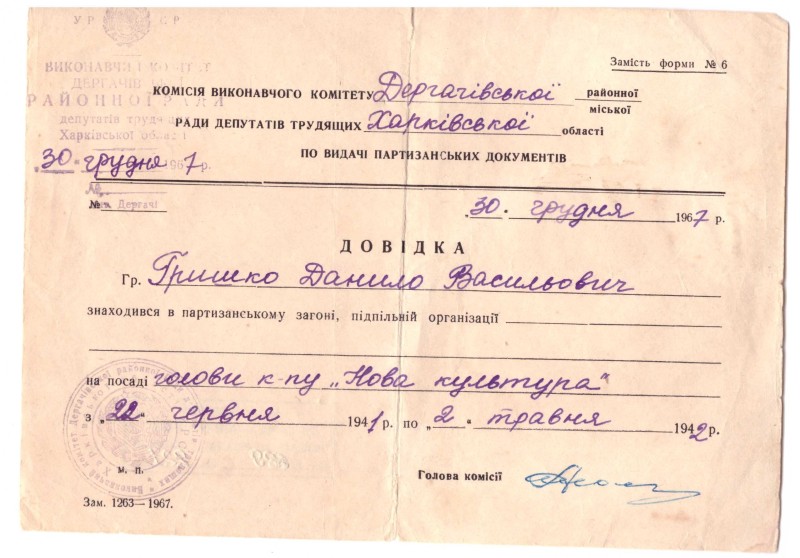 УРСР
ВИКОНАВЧИЙ КОМІТЕТ
ДЕРГАЧІВСЬКОЇ
РАЙОННОЇ РАДИ
депутатів трудящих
Харківської області
„30“ грудня 1967 р.
№
смт. Дергачі
Замість форми № 6
КОМІСІЯ ВИКОНАВЧОГО КОМІТЕТУ Дергачівської районної
міської
РАДИ ДЕПУТАТІВ ТРУДЯЩИХ Харківської області
ПО ВИДАЧІ ПАРТИЗАНСЬКИХ ДОКУМЕНТІВ
„30“ грудня 1967 р.
ДОВІДКА
Гр. Гришко Данило Васильович
знаходився в партизанському загоні, підпільній організації
на посаді голови к-пу „Нова культура“
з „22“ червня 1941 р. по „2“ травня 1942 р.
м. п.
Голова комісії
Зам. 1263—1967.